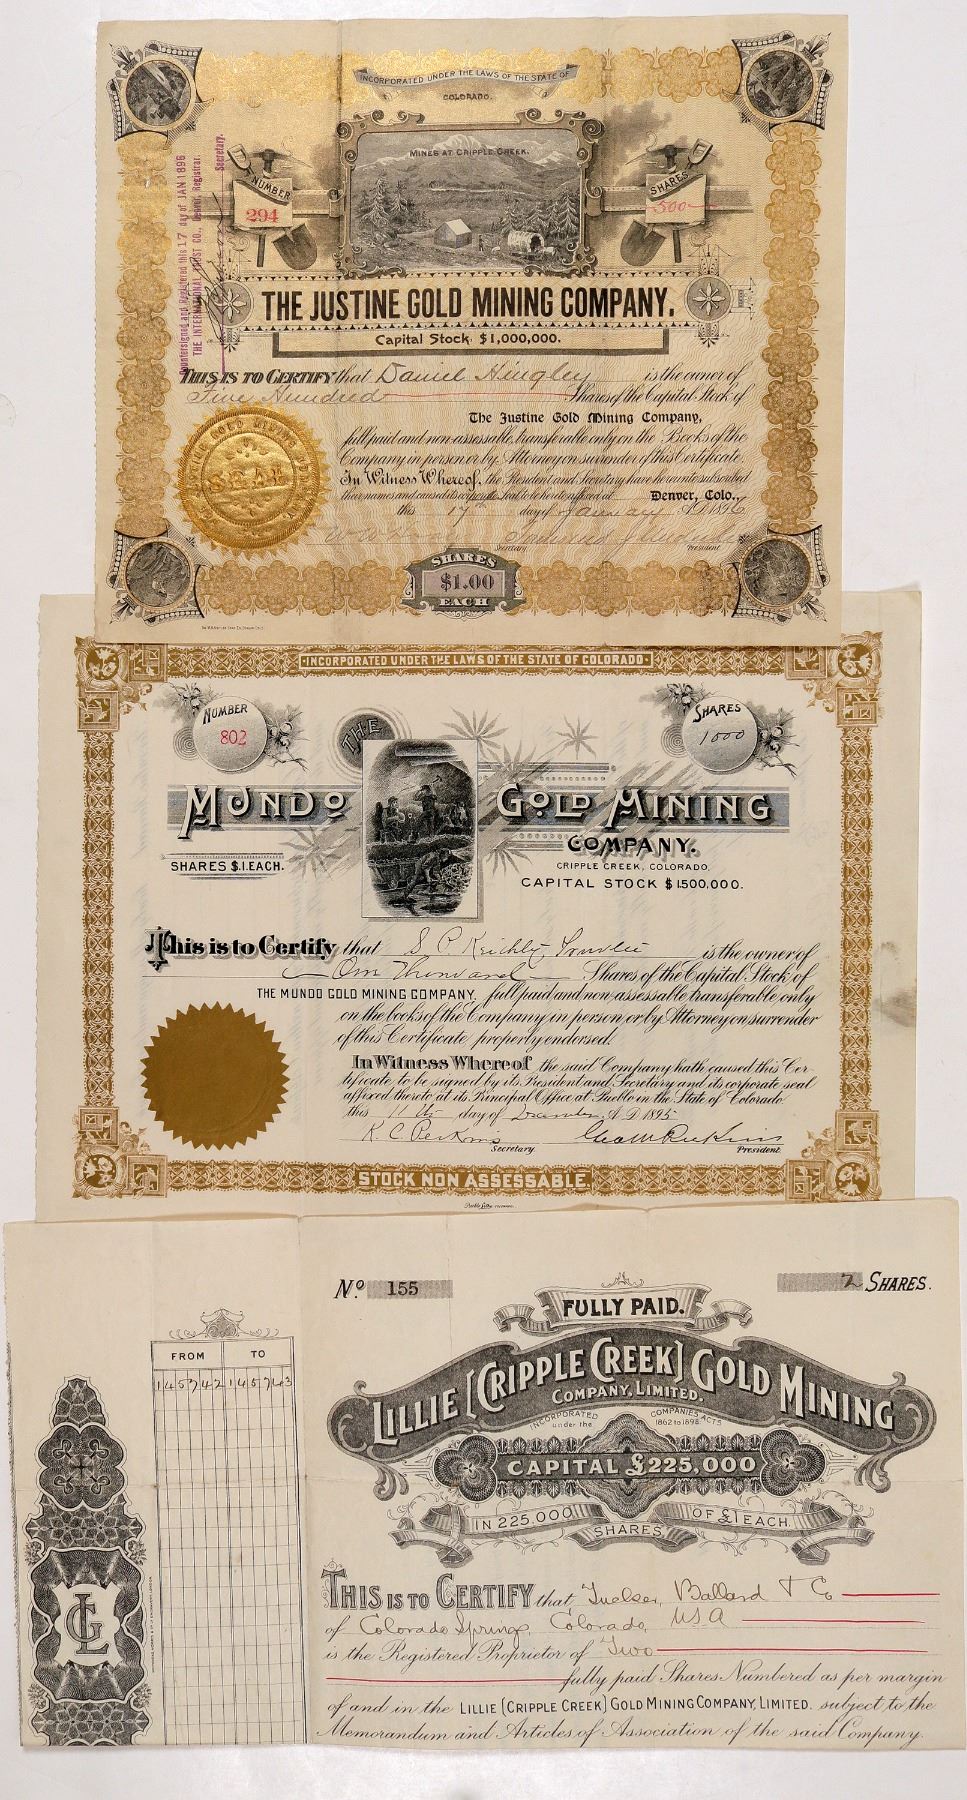 INCORPORATED UNDER THE LAWS OF THE STATE OF
COLORADO.
MINES AT CRIPPLE CREEK.
NUMBER
294
SHARES
500
Countersigned and Registered this 17 day of JAN 1896
THE INTERNATIONAL TRUST CO., Denver, Registrar.
Secretary.
THE JUSTINE GOLD MINING COMPANY.
Capital Stock $1,000,000.
THIS IS TO CERTIFY that Daniel Hingley is the owner of
Five Hundred Shares of the Capital Stock of
The Justine Gold Mining Company,
full paid and non-assessable, transferable only on the Books of the
Company in person or by Attorney on surrender of this Certificate.
In Witness Whereof, the President and Secretary have hereunto subscribed
their names and caused its corporate Seal to be hereto affixed at Denver, Colo.,
this 17th day of January A.D. 1896
Secretary President
SEAL
SHARES
$1.00
EACH
INCORPORATED UNDER THE LAWS OF THE STATE OF COLORADO
NUMBER
802
SHARES
1000
THE
MUNDO GOLD MINING
COMPANY.
SHARES $1. EACH.
CRIPPLE CREEK, COLORADO.
CAPITAL STOCK $1500,000.
This is to Certify that S P Keichly Trustee is the owner of
One Thousand Shares of the Capital Stock of
THE MUNDO GOLD MINING COMPANY, full paid and non assessable transferable only
on the books of the Company in person or by Attorney on surrender
of this Certificate properly endorsed.
In Witness Whereof the said Company hath caused this Cer-
tificate to be signed by its President and Secretary and its corporate seal
affixed thereto at its Principal Office at Pueblo in the State of Colorado
this 11th day of December A.D. 1895
K. C. Perkins Chas M Perkins
Secretary. President.
STOCK NON ASSESSABLE.
No. 155
2 SHARES.
FULLY PAID.
LILLIE [CRIPPLE CREEK] GOLD MINING
COMPANY, LIMITED.
INCORPORATED under the COMPANIES ACTS 1862 to 1898
CAPITAL £225,000
IN 225,000 SHARES OF £1 EACH.
FROM TO
145742 145743
LG
THIS IS TO CERTIFY that Ballard & Co
of Colorado Springs, Colorado, USA
is the Registered Proprietor of Two
fully paid Shares Numbered as per margin
of and in the LILLIE [CRIPPLE CREEK] GOLD MINING COMPANY, LIMITED. subject to the
Memorandum and Articles of Association of the said Company.